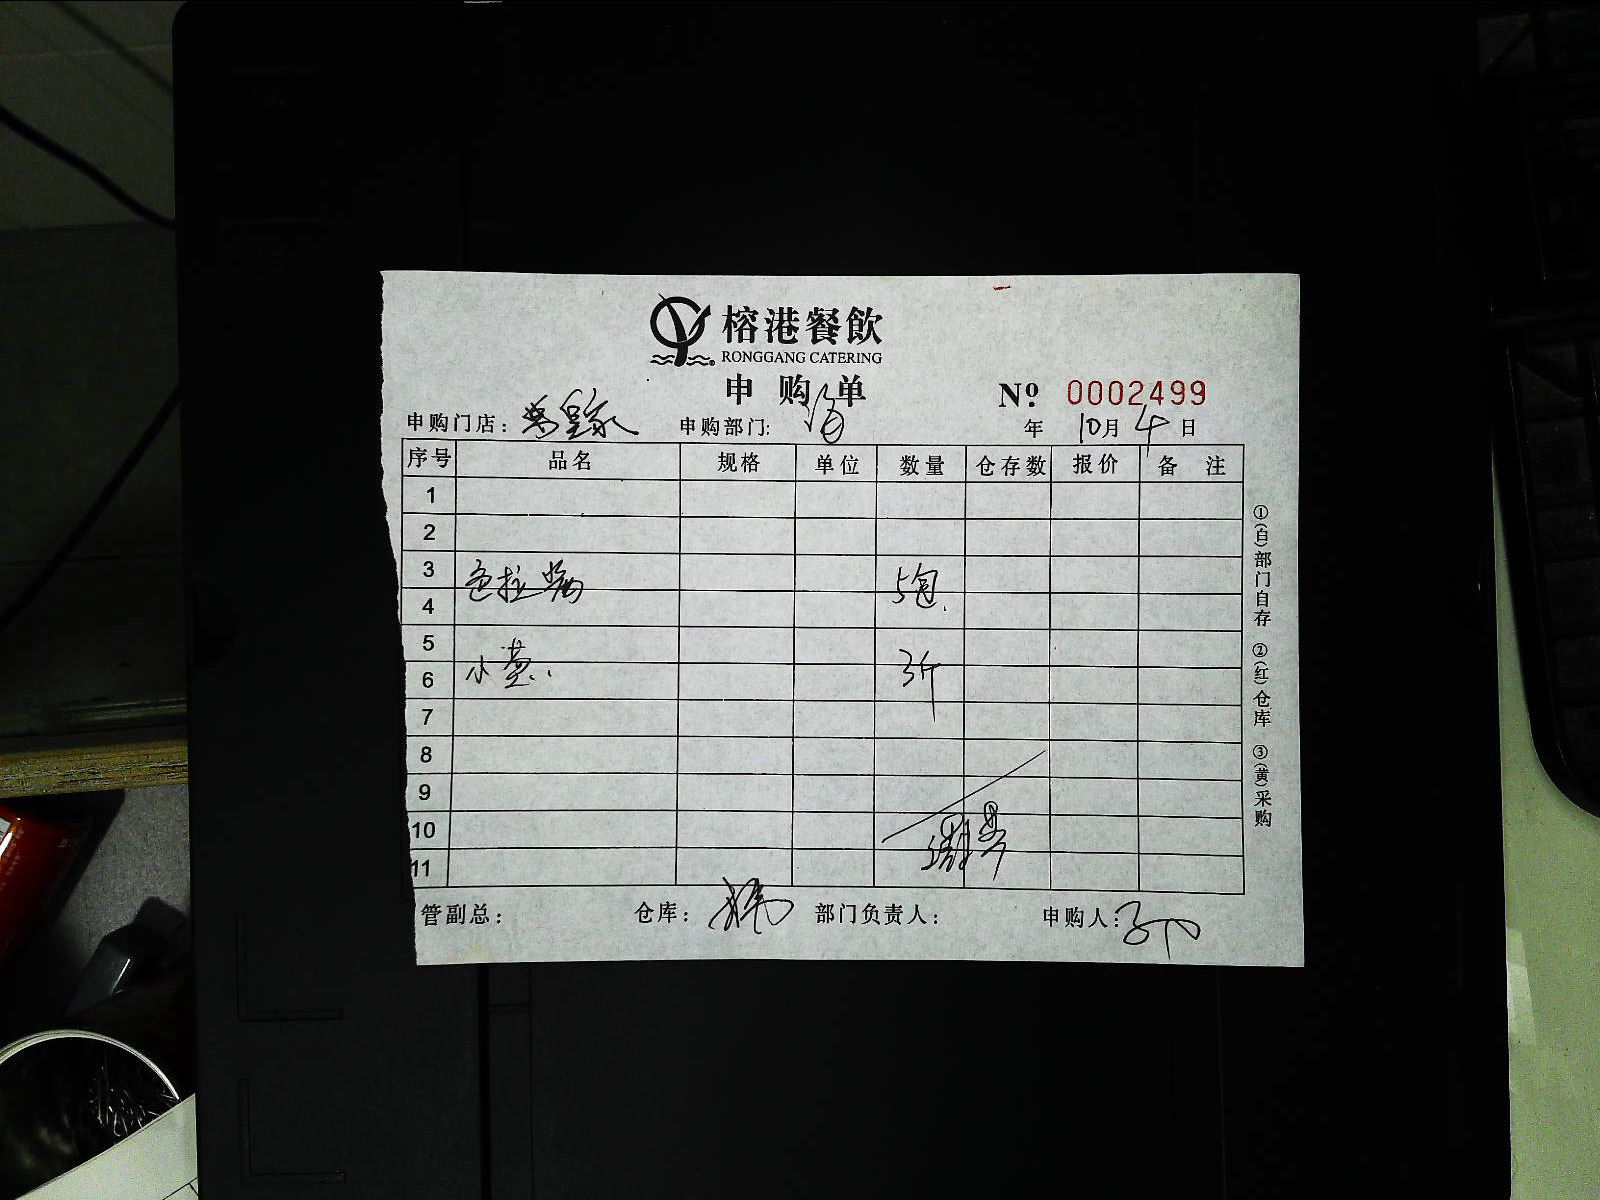 榕港餐飲
RONGGANG CATERING
申购单
Nº 0002499
申购门店: 粤皇家 申购部门: 年 10月 4日
序号 品名 规格 单位 数量 仓存数 报价 备注
1
2
3 色拉酱 5包
4
5
6 小葱 3斤
7
8
9
10
11
管副总: 仓库: 部门负责人: 申购人:
①(白)部门自存 ②(红)仓库 ③(黄)采购